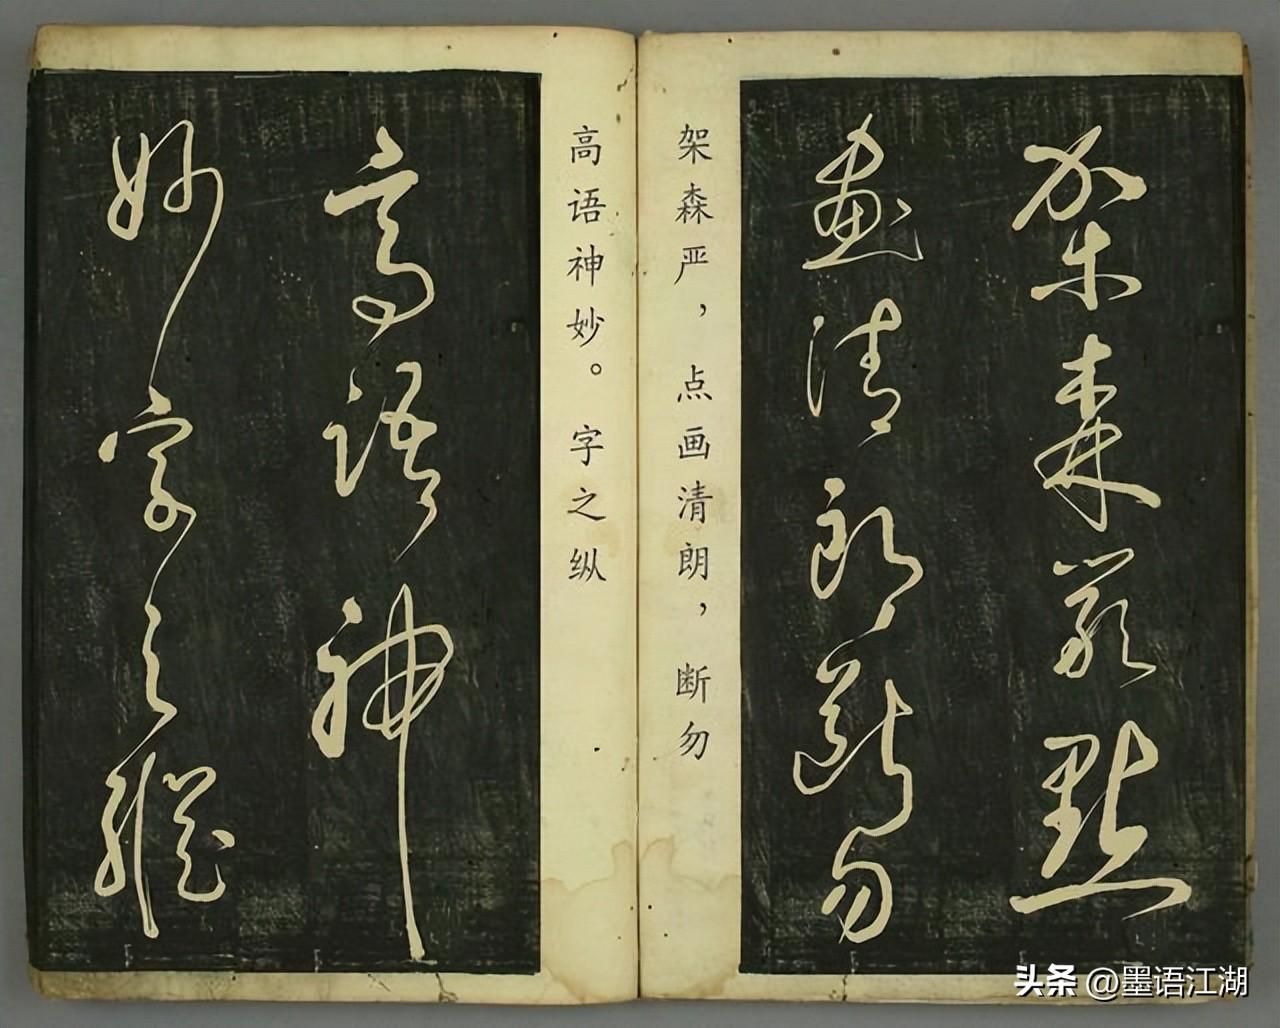 架森嚴點
畫清朗斷勿
架森严，点画清朗，断勿
高语神妙。字之纵
高語神
妙字之縱
头条 @墨语江湖